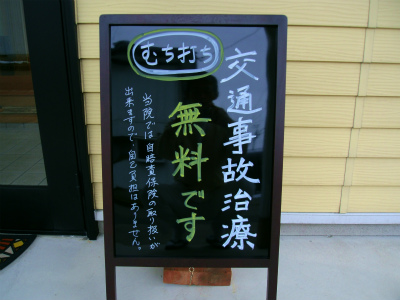 むち打ち
交通事故治療
無料です
当院では自賠責保険の取り扱いが
出来ますので、自己負担はありません。